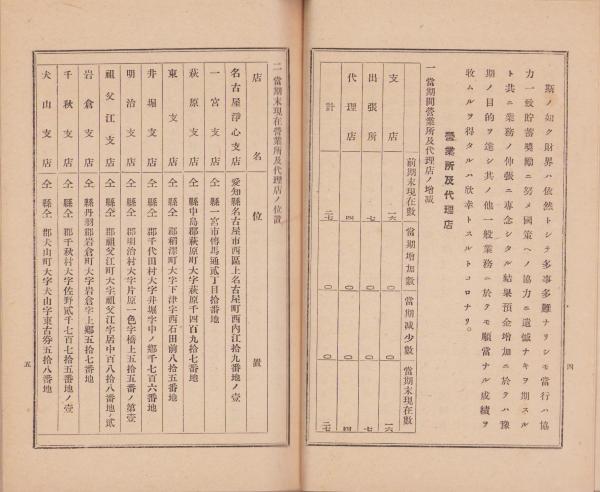 斯ノ如ク財界ハ依然トシテ多事多難ナリシモ當行ハ協
力一致貯蓄奬勵ニ努メ國策ヘノ協力ニ遺憾ナキヲ期スル
ト共ニ業務ノ伸張ニ專念シタル結果預金增加ニ於テハ豫
期ノ目的ヲ達シ其ノ他一般業務ニ於テモ順當ナル成績ヲ
收ムルヲ得タルハ欣幸トスルトコロナリ。
營業所及代理店
一 當期間營業所及代理店ノ增減
前期末現在數 當期增加數 當期減少數 當期末現在數
支店 一六 〇 〇 一六
出張所 七 〇 〇 七
代理店 四 〇 〇 四
計 二七 〇 〇 二七
四
二 當期末現在營業所及代理店ノ位置
店名 位置
名古屋淨心支店 愛知縣名古屋市西區上名古屋町西內江拾九番地ノ壹
一宮支店 仝縣一宮市傳馬通貳丁目拾番地
萩原支店 仝縣中島郡萩原町大字萩原千四百九拾七番地
東支店 仝縣仝郡稻澤町大字下津字西石田前八拾五番地
井堀支店 仝縣仝郡千代田村大字井堀字中ノ鄕千七百六番地
明治支店 仝縣仝郡明治村大字片原一色字橋上五拾五番ノ第壹
祖父江支店 仝縣仝郡祖父江町大字祖父江字居中百八拾八番地ノ貳
岩倉支店 仝縣丹羽郡岩倉町大字岩倉字上鄕五拾七番地
千秋支店 仝縣仝郡千秋村大字佐野貳千七百七拾五番地ノ壹
犬山支店 仝縣仝郡犬山町大字犬山字東古券五拾八番地
五